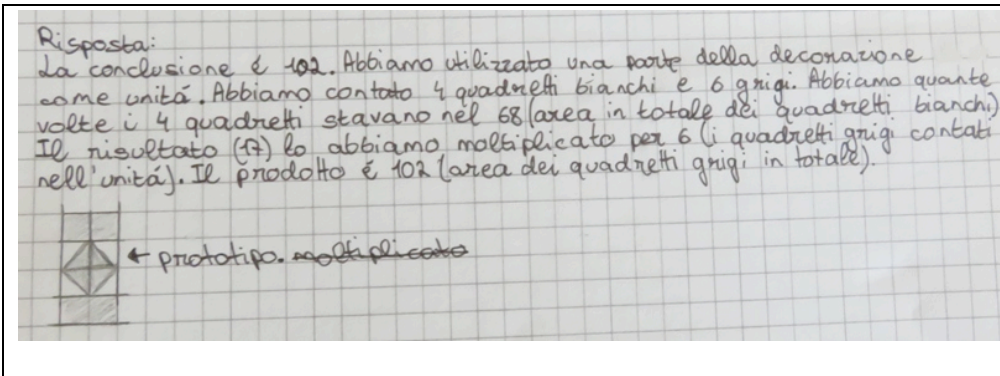 Risposta:
La conclusione é 102. Abbiamo utilizzato una parte della decorazione
come unitá. Abbiamo contato 4 quadretti bianchi e 6 grigi. Abbiamo quante
volte i 4 quadretti stavano nel 68 (area in totale dei quadretti bianchi)
Il risultato (17) lo abbiamo moltiplicato per 6 (i quadretti grigi contati
nell'unitá). Il prodotto é 102 (area dei quadretti grigi in totale).
← prototipo. moltiplicato